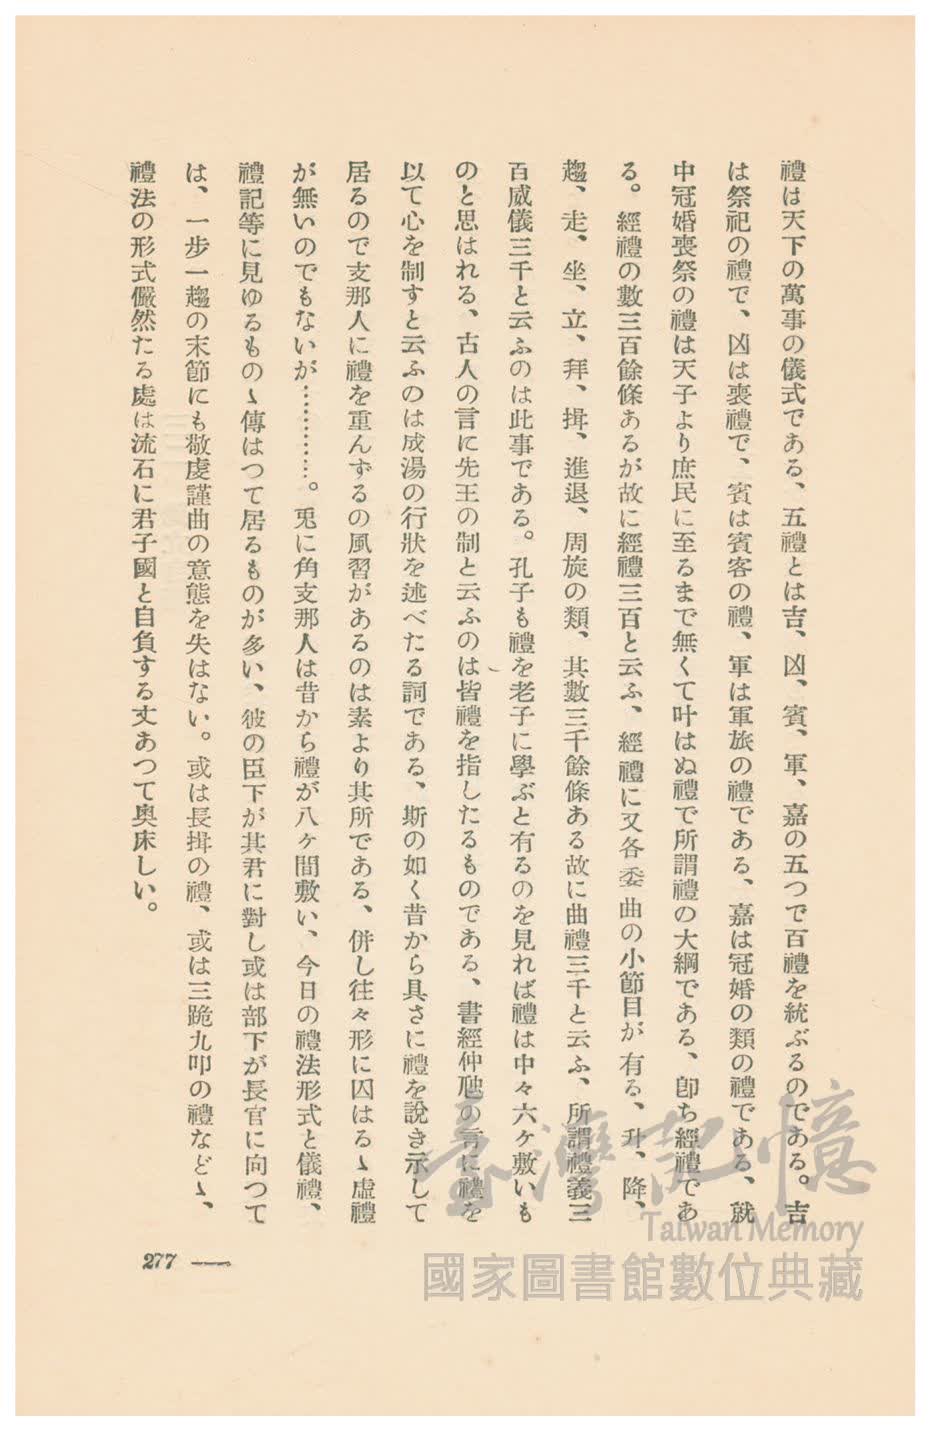 禮は天下の萬事の儀式である、五禮とは吉、凶、賓、軍、嘉の五つで百禮を統ぶるのである。吉
は祭祀の禮で、凶は喪禮で、賓は賓客の禮、軍は軍旅の禮である、嘉は冠婚の類の禮である、就
中冠婚喪祭の禮は天子より庶民に至るまで無くて叶はぬ禮で所謂禮の大綱である、卽ち經禮であ
る。經禮の數三百餘條あるが故に經禮三百と云ふ、經禮に又各委曲の小節目が有る、升、降、
趨、走、坐、立、拜、揖、進退、周旋の類、其數三千餘條ある故に曲禮三千と云ふ、所謂禮義三
百威儀三千と云ふのは此事である。孔子も禮を老子に學ぶと有るのを見れば禮は中々六ケ敷いも
のと思はれる、古人の言に先王の制と云ふのは皆禮を指したるものである、書經仲虺の言に禮を
以て心を制すと云ふのは成湯の行狀を述べたる詞である、斯の如く昔から具さに禮を說き示して
居るので支那人に禮を重んずるの風習があるのは素より其所である、併し往々形に囚はるゝ虛禮
が無いのでもないが…………。兎に角支那人は昔から禮が八ケ間敷い、今日の禮法形式と儀禮、
禮記等に見ゆるものゝ傳はつて居るものが多い、彼の臣下が其君に對し或は部下が長官に向つて
は、一步一趨の末節にも敬虔謹曲の意態を失はない。或は長揖の禮、或は三跪九叩の禮などゝ、
禮法の形式儼然たる處は流石に君子國と自負する丈あつて奧床しい。
277 —
臺灣記憶
Taiwan Memory
國家圖書館數位典藏